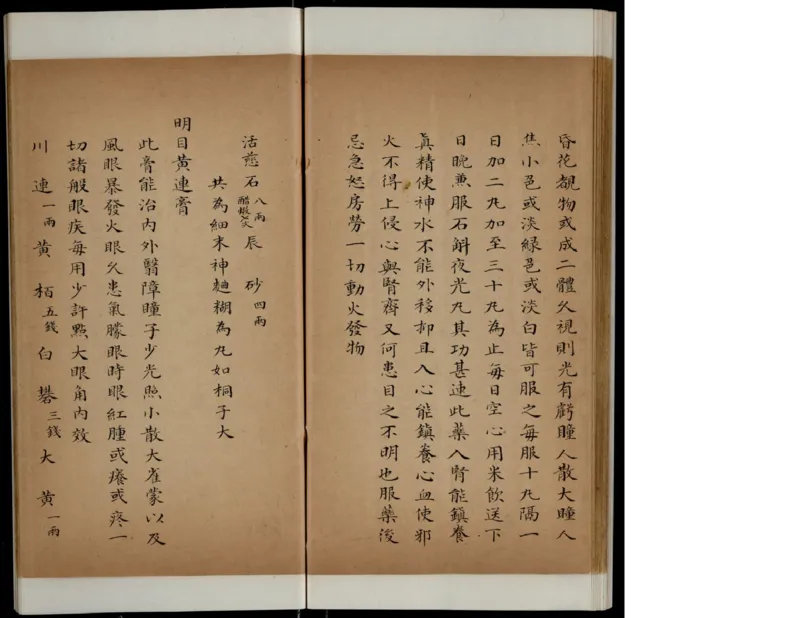 昏花覩物或成二體久視則光有虧瞳人散大瞳人
焦小邑或淡緑邑或淡白皆可服之每服十九隔一
日加二丸加至三十丸為止每日空心用米飲送下
日晚兼服石斛夜光丸其功甚速此藥入腎能鎮養
真精使神水不能外移抑且入心能鎮養心血使邪
火不得上侵心與腎齊又何患目之不明也服藥後
忌急怒房勞一切動火發物
活慈石八兩醋煅七次辰砂四兩
共為細末神麯糊為丸如桐子大
明目黃連膏
此膏能治內外醫障瞳子少光熊小散大雀蒙以及
風眼暴發火眼久患氣矇眼時眼紅腫或癢或疼一
切諸般眼疾每用少許點大眼角內效
川連一兩黃栢五錢白礬三錢大黃一兩